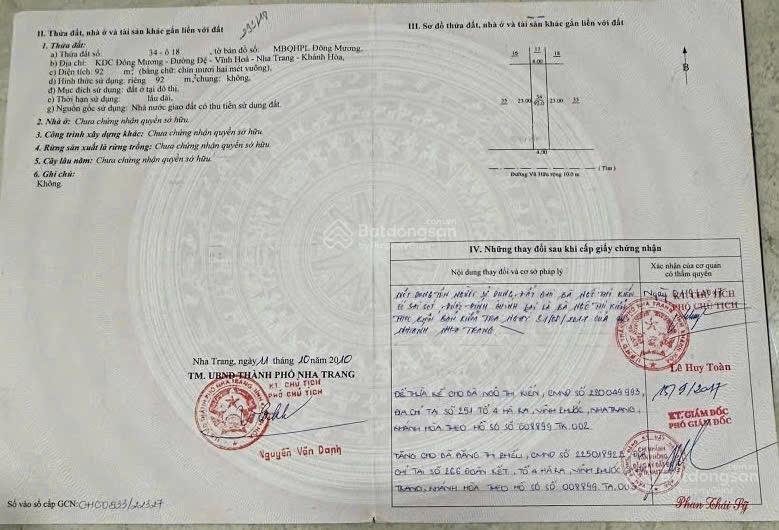 II. Thửa đất, nhà ở và tài sản khác gắn liền với đất
1. Thửa đất:
a) Thửa đất số: 34 - ô 18 , tờ bản đồ số: MBQHPL Đông Mương,
b) Địa chỉ: KDC Đông Mương - Đường Đệ - Vĩnh Hoà - Nha Trang - Khánh Hòa,
c) Diện tích: 92 m², (bằng chữ: chín mươi hai mét vuông),
d) Hình thức sử dụng: riêng 92 m², chung: không,
đ) Mục đích sử dụng: đất ở tại đô thị.
e) Thời hạn sử dụng: lâu dài,
g) Nguồn gốc sử dụng: Nhà nước giao đất có thu tiền sử dụng đất.
2. Nhà ở: Chưa chứng nhận quyền sở hữu.
3. Công trình xây dựng khác: Chưa chứng nhận quyền sở hữu.
4. Rừng sản xuất là rừng trồng: Chưa chứng nhận quyền sở hữu.
5. Cây lâu năm: Chưa chứng nhận quyền sở hữu.
6. Ghi chú:
Không.
Nha Trang, ngày 11 tháng 10 năm 2010
TM. UBND THÀNH PHỐ NHA TRANG
KT. CHỦ TỊCH
PHÓ CHỦ TỊCH
Nguyễn Văn Danh
Số vào sổ cấp GCN:
III. Sơ đồ thửa đất, nhà ở và tài sản khác gắn liền với đất
19 12 18
4.00
35 23.00 34 23.00 33
92.0
4.00
( Tim )
Đường Võ Hữu rộng 10.0 m
B
Batdongsan
IV. Những thay đổi sau khi cấp giấy chứng nhận
Nội dung thay đổi và cơ sở pháp lý
Xác nhận của cơ quan
có thẩm quyền
NHÁNH NHA TRANG
KT. CHỦ TỊCH
PHÓ CHỦ TỊCH
Lê Huy Toàn
ĐỂ THỪA KẾ CHO BÀ NGÔ THỊ KIỂN, CMND SỐ 220049993,
ĐỊA CHỈ TẠI SỐ 251 TỔ 4 HÀ RA, VĨNH PHƯỚC, NHA TRANG,
KHÁNH HÒA THEO HỒ SƠ SỐ 008899.TK.002.
15/9/2017
KT. GIÁM ĐỐC
PHÓ GIÁM ĐỐC
TẶNG CHO BÀ ĐẶNG THỊ
CHỈ TẠI SỐ 266 ĐOÀN KẾT, TỔ 4 HÀ RA, VĨNH PHƯỚC
TRANG, KHÁNH HÒA THEO HỒ SƠ SỐ 008899.TA.003
Phan Thái Sỹ